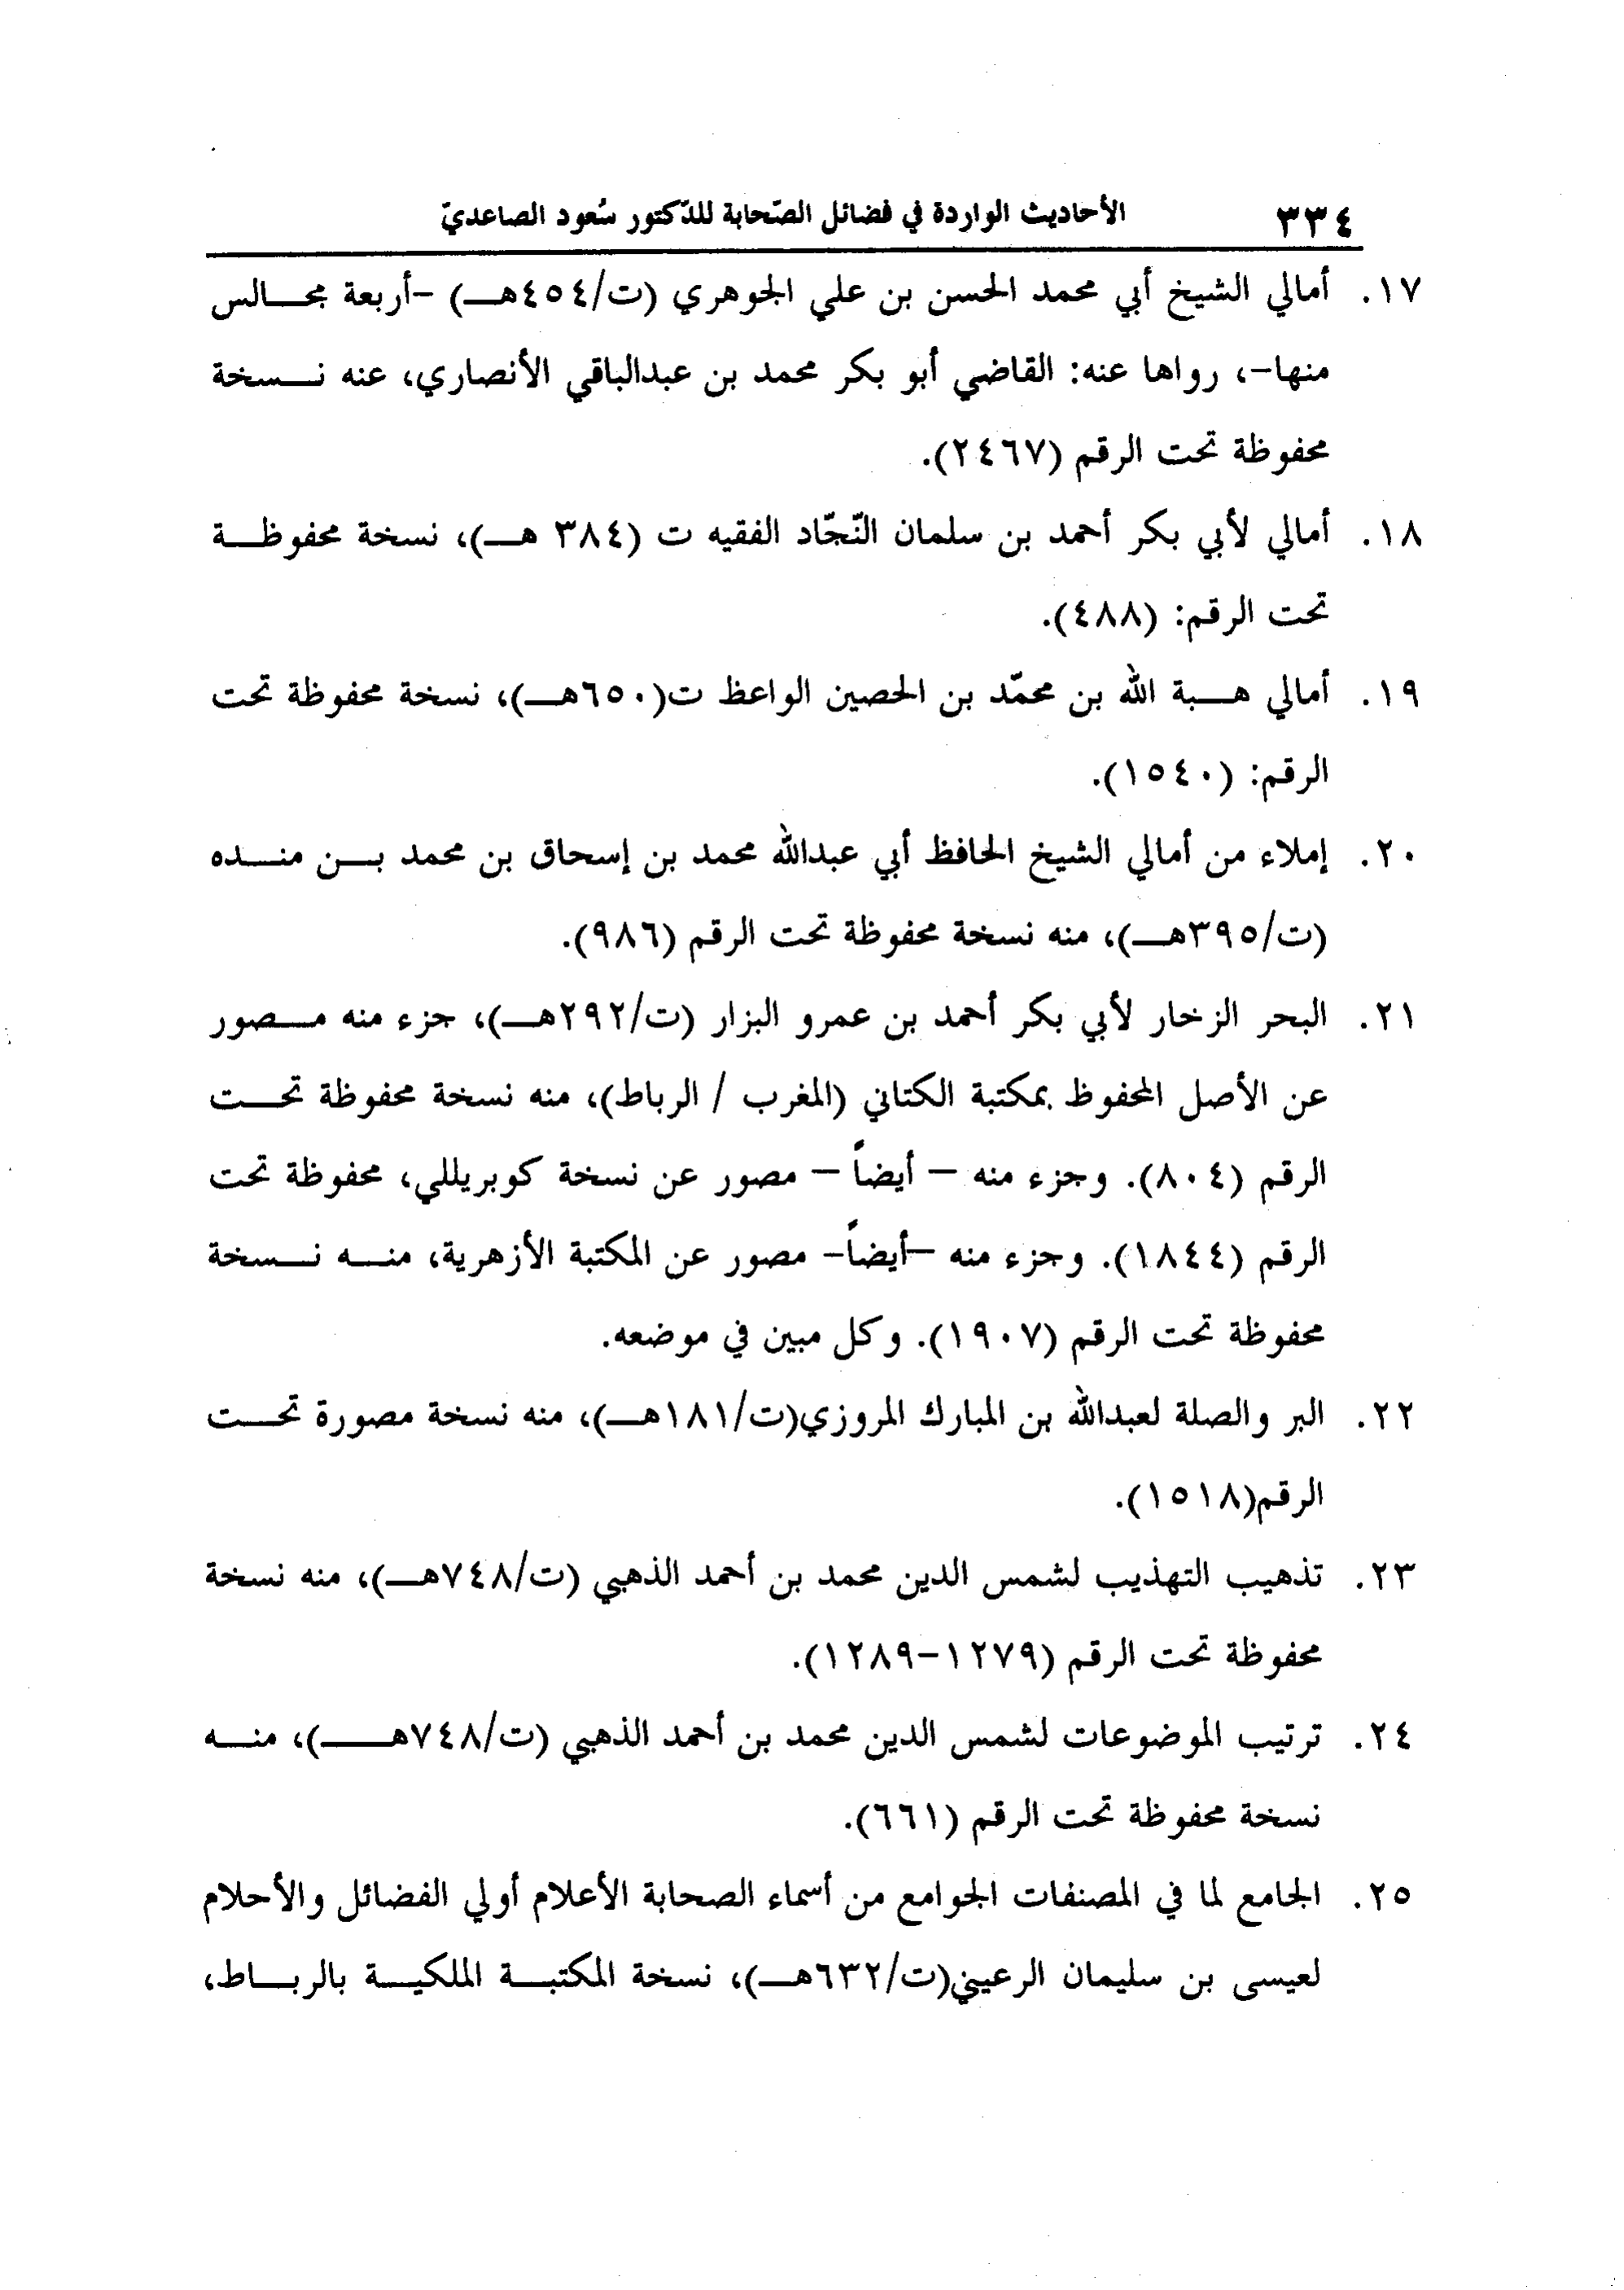 ٣٣٤ الأحاديث الواردة في فضائل الصّحابة للدّكتور سُعود الصاعديّ
١٧. أمالي الشيخ أبي محمد الحسن بن علي الجوهري (ت/٤٥٤هـ) -أربعة مجالس
منها-، رواها عنه: القاضي أبو بكر محمد بن عبدالباقي الأنصاري، عنه نسخة
محفوظة تحت الرقم (٢٤٦٧).
١٨. أمالي لأبي بكر أحمد بن سلمان النّجّاد الفقيه ت (٣٨٤ هـ)، نسخة محفوظة
تحت الرقم: (٤٨٨).
١٩. أمالي هبة الله بن محمّد بن الحصين الواعظ ت(٦٥٠هـ)، نسخة محفوظة تحت
الرقم: (١٥٤٠).
٢٠. إملاء من أمالي الشيخ الحافظ أبي عبدالله محمد بن إسحاق بن محمد بن منده
(ت/٣٩٥هـ)، منه نسخة محفوظة تحت الرقم (٩٨٦).
٢١. البحر الزخار لأبي بكر أحمد بن عمرو البزار (ت/٢٩٢هـ)، جزء منه مصور
عن الأصل المحفوظ بمكتبة الكتاني (المغرب / الرباط)، منه نسخة محفوظة تحت
الرقم (٨٠٤). وجزء منه – أيضاً – مصور عن نسخة كوبريللي، محفوظة تحت
الرقم (١٨٤٤). وجزء منه –أيضاً- مصور عن المكتبة الأزهرية، منه نسخة
محفوظة تحت الرقم (١٩٠٧). وكل مبين في موضعه.
٢٢. البر والصلة لعبدالله بن المبارك المروزي(ت/١٨١هـ)، منه نسخة مصورة تحت
الرقم(١٥١٨).
٢٣. تذهيب التهذيب لشمس الدين محمد بن أحمد الذهبي (ت/٧٤٨هـ)، منه نسخة
محفوظة تحت الرقم (١٢٧٩-١٢٨٩).
٢٤. ترتيب الموضوعات لشمس الدين محمد بن أحمد الذهبي (ت/٧٤٨هـ)، منه
نسخة محفوظة تحت الرقم (٦٦١).
٢٥. الجامع لما في المصنفات الجوامع من أسماء الصحابة الأعلام أولي الفضائل والأحلام
لعيسى بن سليمان الرعيني(ت/٦٣٢هـ)، نسخة المكتبة الملكية بالرباط،